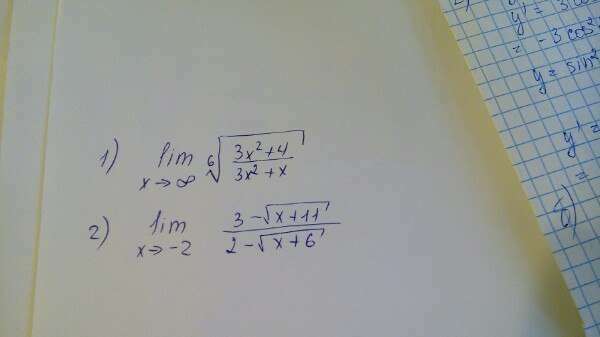 1) lim x→∞ ⁶√((3x²+4)/(3x²+x))
2) lim x→-2 (3-√(x+11))/(2-√(x+6))
y' =
= -3cos²
y = sin²
y' =
=